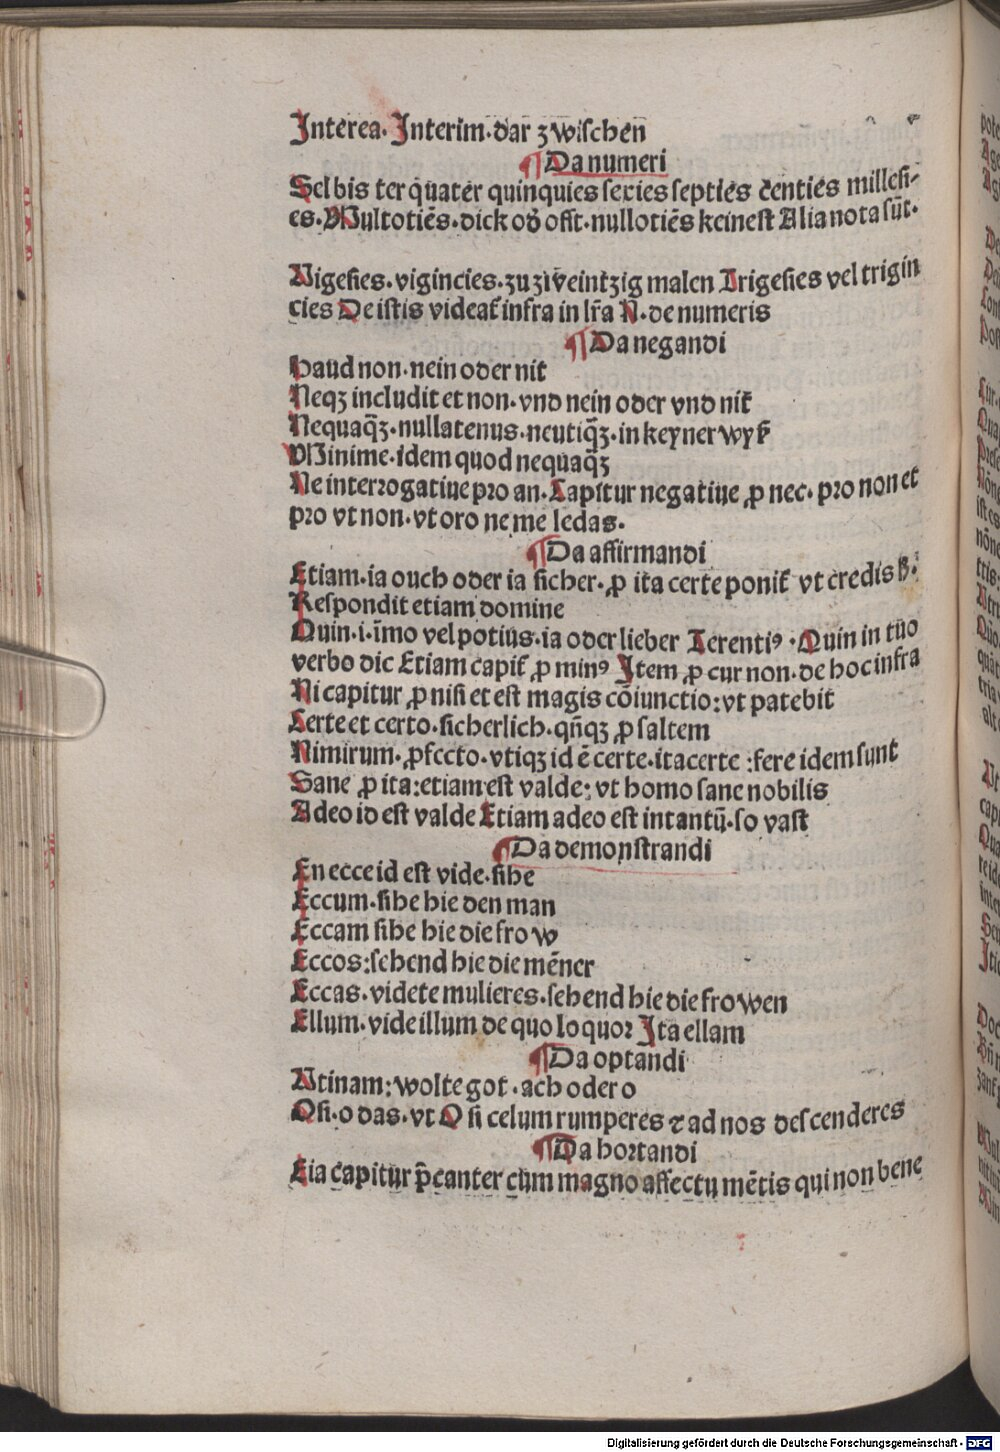 Interea. Interim. dar zwischen
¶ Da numeri
Sel bis ter quater quinquies sexies septies centies millesi-
es. Multotiēs. dick oď offt. nullotiēs keinest Alia nota sūt.
Vigesies. vigincies. zu zwēintzig malen Trigesies vel trigin
cies De istis videat̄ infra in lr̄a N. de numeris
¶ Da negandi
Haud non. nein oder nit
Neqꝫ includit et non. vnd nein oder vnd nit̄
Nequaq̄ꝫ. nullatenus. neutiq̄ꝫ. in keyner wyß
Minime. idem quod nequaq̄ꝫ
Ne interrogatiue pro an. Capitur negatiue ꝓ nec. pro non et
pro vt non. vt oro ne me ledas.
¶ Da affirmandi
Etiam. ia ouch oder ia sicher. ꝓ ita certe ponit̄ vt credis
Respondit etiam domine
Quin. i. īmo vel potius. ia oder lieber Terentiꝰ. Quin in tuo
verbo dic Etiam capit̄ ꝓ minꝰ Item ꝓ cur non. de hoc infra
Ni capitur ꝓ nisi et est magis cōiunctio: vt patebit
Certe et certo. sicherlich. qn̄qꝫ ꝓ saltem
Nimirum. ꝓfecto. vtiqꝫ id ē certe. itacerte: fere idem sunt
Sane ꝓ ita: etiam est valde: vt homo sane nobilis
Adeo id est valde Etiam adeo est intantū. so vast
¶ Da demonstrandi
En ecce id est vide. sihe
Eccum. sihe hie den man
Eccam sihe hie die frow
Eccos: sehend hie die mēner
Eccas. videte mulieres. sehend hie die frowen
Ellum. vide illum de quo loquor Ita ellam
¶ Da optandi
Vtinam: wolte got. ach oder o
Osi. o das. vt O si celum rumperes ⁊ ad nos descenderes
¶ Da hortandi
Eia capitur p̄canter cum magno affectu mētis qui non bene
Digitalisierung gefördert durch die Deutsche Forschungsgemeinschaft - DFG